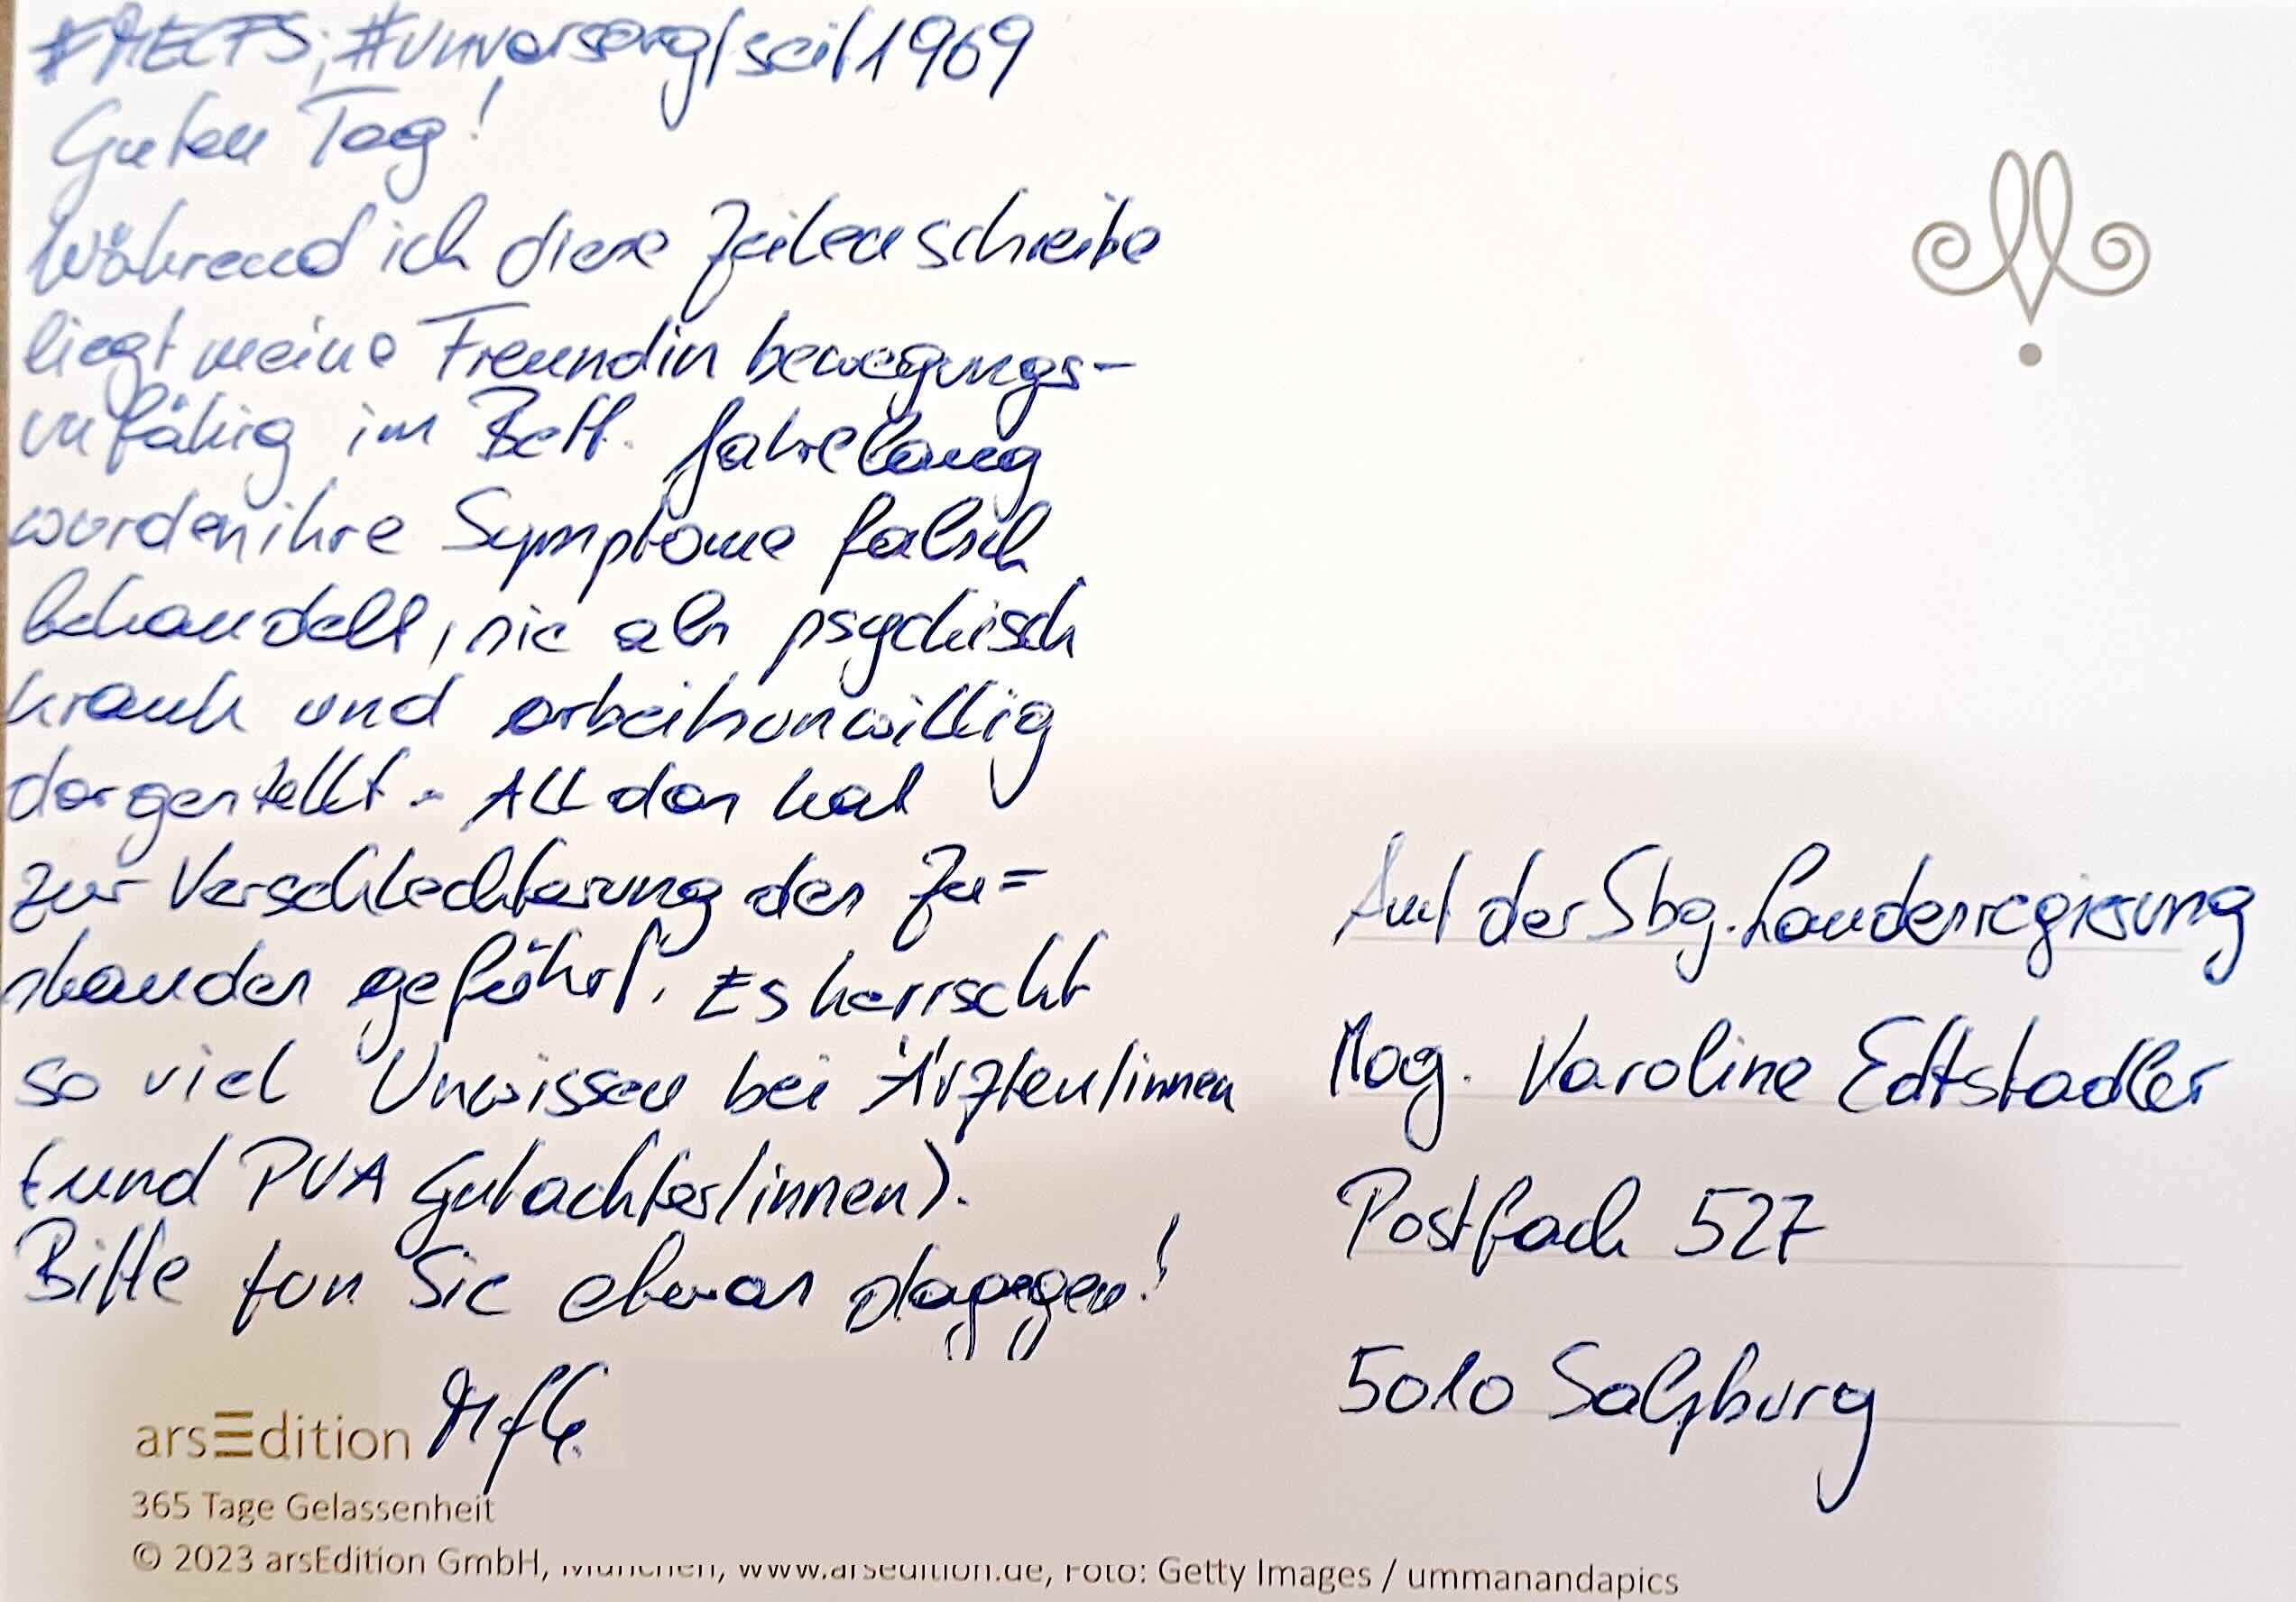 #MECFS; #unversorgtseit1969
Guten Tag!
Während ich diese Zeilen schreibe
liegt meine Freundin bewegungs-
unfähig im Bett. Jahrelang
wurden ihre Symptome falsch
behandelt, sie als psychisch
krank und arbeitsunwillig
dargestellt. All das hat
zur Verschlechterung des Zu=
standes geführt. Es herrscht
so viel Unwissen bei Ärzten/innen
(und PVA Gutachter/innen).
Bitte tun Sie etwas dagegen!
MfG.
arsEdition
365 Tage Gelassenheit
© 2023 arsEdition GmbH, München, www.arsedition.de, Foto: Getty Images / ummanandapics
Amt der Sbg. Landesregierung
Mag. Karoline Edtstadler
Postfach 527
5010 Salzburg